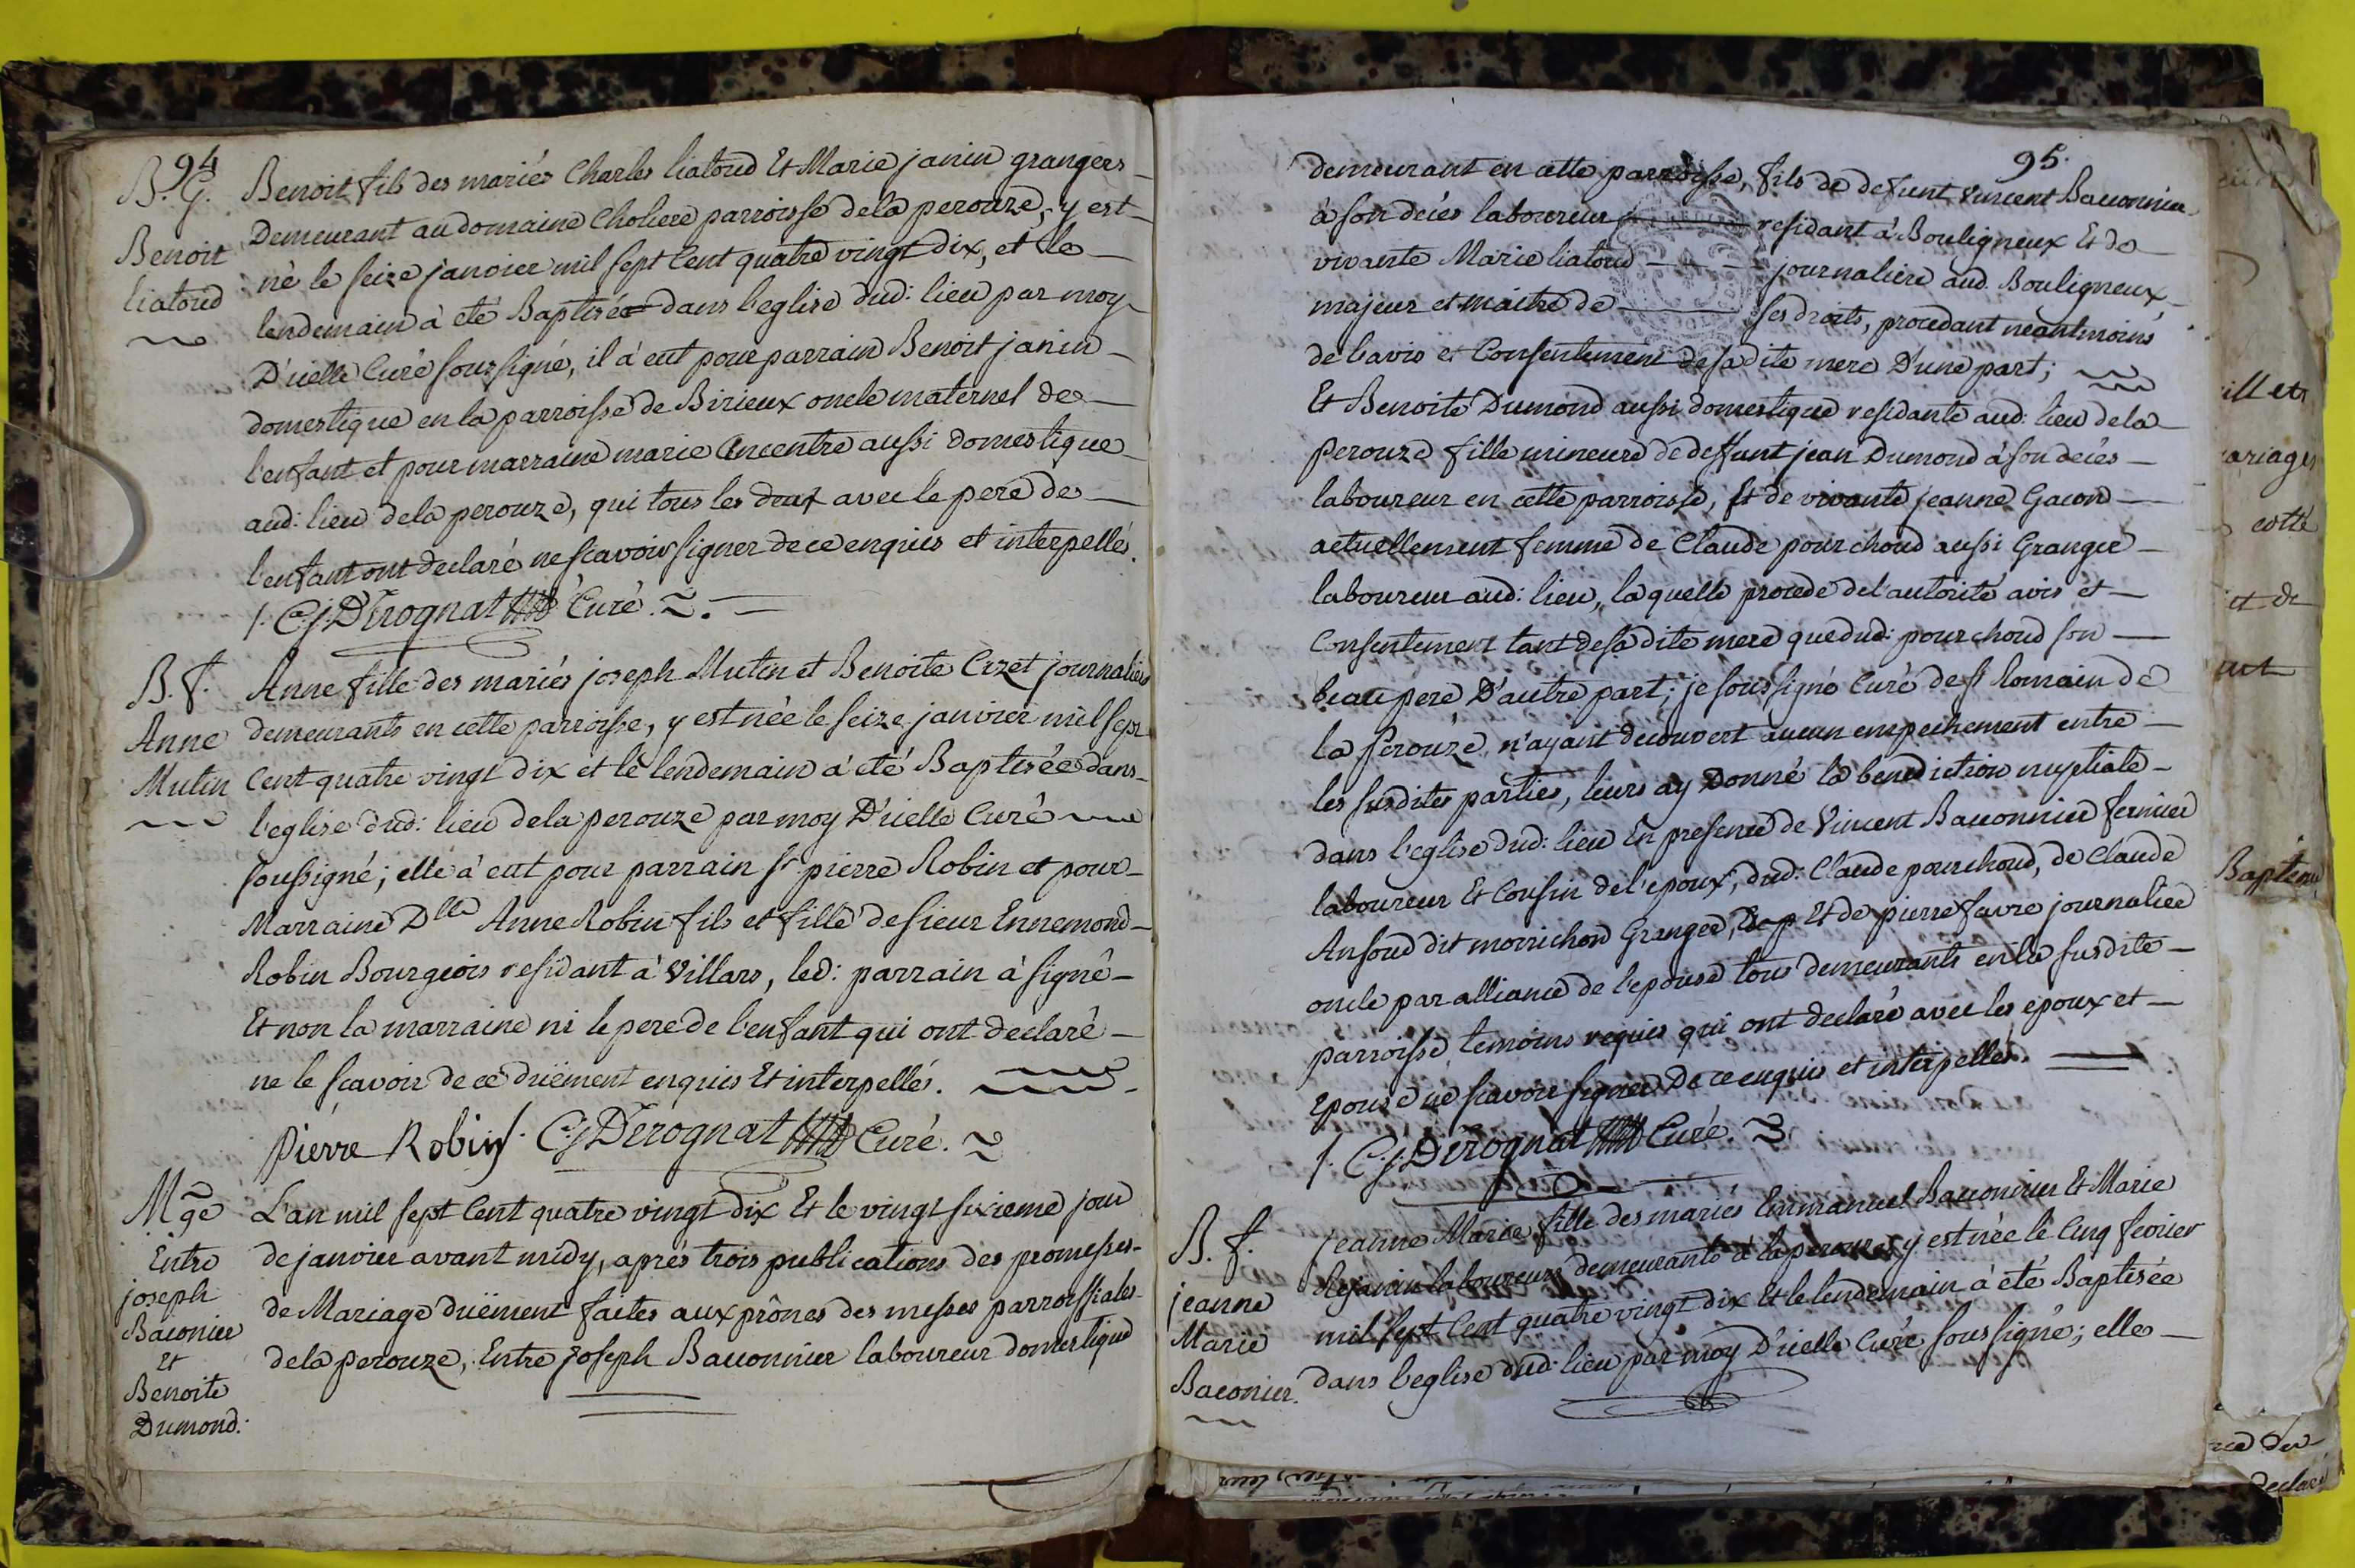 94
B. G.
Benoit
liatoud
Benoit fils des mariés Charles liatoud Et Marie janin grangers
Demeurant au domaine Choliere parroisse dela perouze, y est
né le seize janvier mil sept Cent quatre vingt dix, et le
lendemain à eté Baptisé dans l'eglise dud: lieu par moy
D'icelle Curé soussigné, il à eut pour parrain Benoit janin
domestique en la parroisse de Birieux oncle maternel de
l'enfant et pour marraine marie aussi domestique
aud: lieu dela perouze, qui tous les deux avec le pere de
l'enfant ont declaré ne scavoir signer de ce enquis et interpellés.
C. j. Derognat Curé.
B. f.
Anne
Mutin
Anne fille des mariés joseph Mutin et Benoite Cizet journaliers
demeurants en cette parroisse, y est née le seize janvier mil sept
Cent quatre vingt dix et le lendemain à eté Baptisée dans
l'eglise dud: lieu dela perouze par moy D'icelle Curé
soussigné; elle à eut pour parrain sr pierre Robin et pour
Marraine Dlle Anne Robin fils et fille de sieur Ennemond
Robin Bourgeois residant à Villars, led: parrain à signé
Et non la marraine ni le pere de l'enfant qui ont declaré
ne le scavoir de ce duëment enquis Et interpellés.
Pierre Robin C. j. Derognat Curé.
Mge
Entre
joseph
Baconier
Et
Benoite
Dumond:
L'an mil sept Cent quatre vingt dix Et le vingt sixieme jour
de janvier avant midy, aprés trois publications des promesses
de Mariage duëment faites aux prônes des messes parroissiales
dela perouze, Entre Joseph Bacconnier laboureur domestique
95.
demeurant en cette parroisse, fils de defunt Vincent Bacconnier
à son decés laboureur residant à Bouligneux Et de
vivante Marie liatoud journaliere aud. Bouligneux,
majeur et maitre de ses droits, procedant neantmoins
de l'avis et Consentement de sa dite mere D'une part;
Et Benoite Dumond aussi domestique residante aud: lieu dela
Perouze fille mineure de deffunt jean Dumond à son decés
laboureur en cette parroisse, Et de vivante jeanne Gacon
actuellement femme de Claude pourchoud aussi Granger
laboureur aud: lieu, laquelle procede de l'autorité avis et
Consentement tant de sa dite mere que dud: pourchoud son
beau pere D'autre part; je soussigné Curé de st Romain de
la Perouze n'ayant decouvert aucun empechement entre
les susdites parties, leurs ay Donné la benediction nuptiale
dans l'eglise dud: lieu En presence de Vincent Bacconnier fermier
laboureur Et Cousin de l'epoux, dud: Claude pourchoud, de Claude
Ansoud dit morrichon Granger, Et de pierre favre journalier
oncle par alliance de l'epouse tous demeurants en la susdite
parroisse temoins requis qui ont declaré avec les epoux et
Epouse ne scavoir signer De ce enquis et interpellés.
C. j. Derognat Curé.
B. f.
jeanne
Marie
Baconier.
jeanne Marie fille des mariés Emmanuel Bacconnier Et Marie
Dejanin laboureurs demeurants à la perouze, y est née le Cinq fevrier
mil sept Cent quatre vingt dix Et le lendemain à eté Baptisée
dans l'eglise dud: lieu par moy D'icelle Curé soussigné; elle